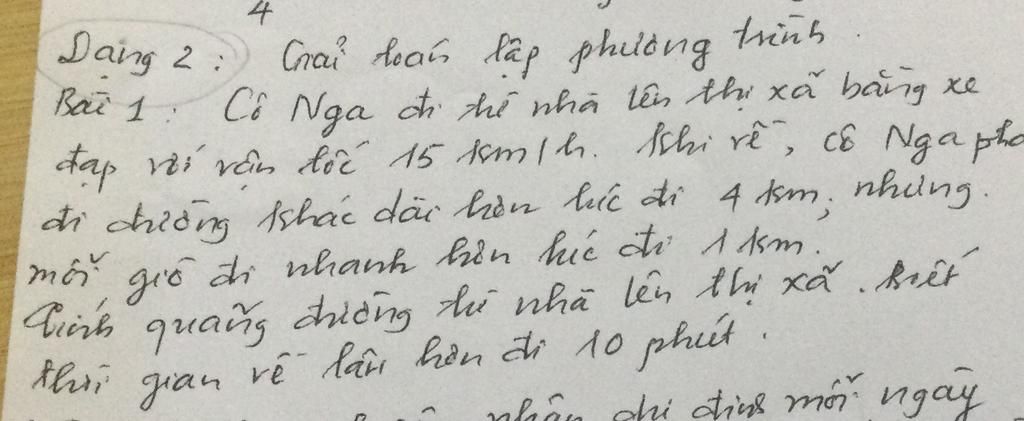 4
Dạng 2 : Giải toán lập phương trình.
Bài 1 : Cô Nga đi từ nhà lên thị xã bằng xe
đạp với vận tốc 15 km/h. Khi về, cô Nga phả
đi đường khác dài hơn lúc đi 4 km, nhưng.
mỗi giờ đi nhanh hơn lúc đi 1 km.
Tính quãng đường từ nhà lên thị xã. biết
thời gian về lâu hơn đi 10 phút.
nhân chỉ định mỗi ngày